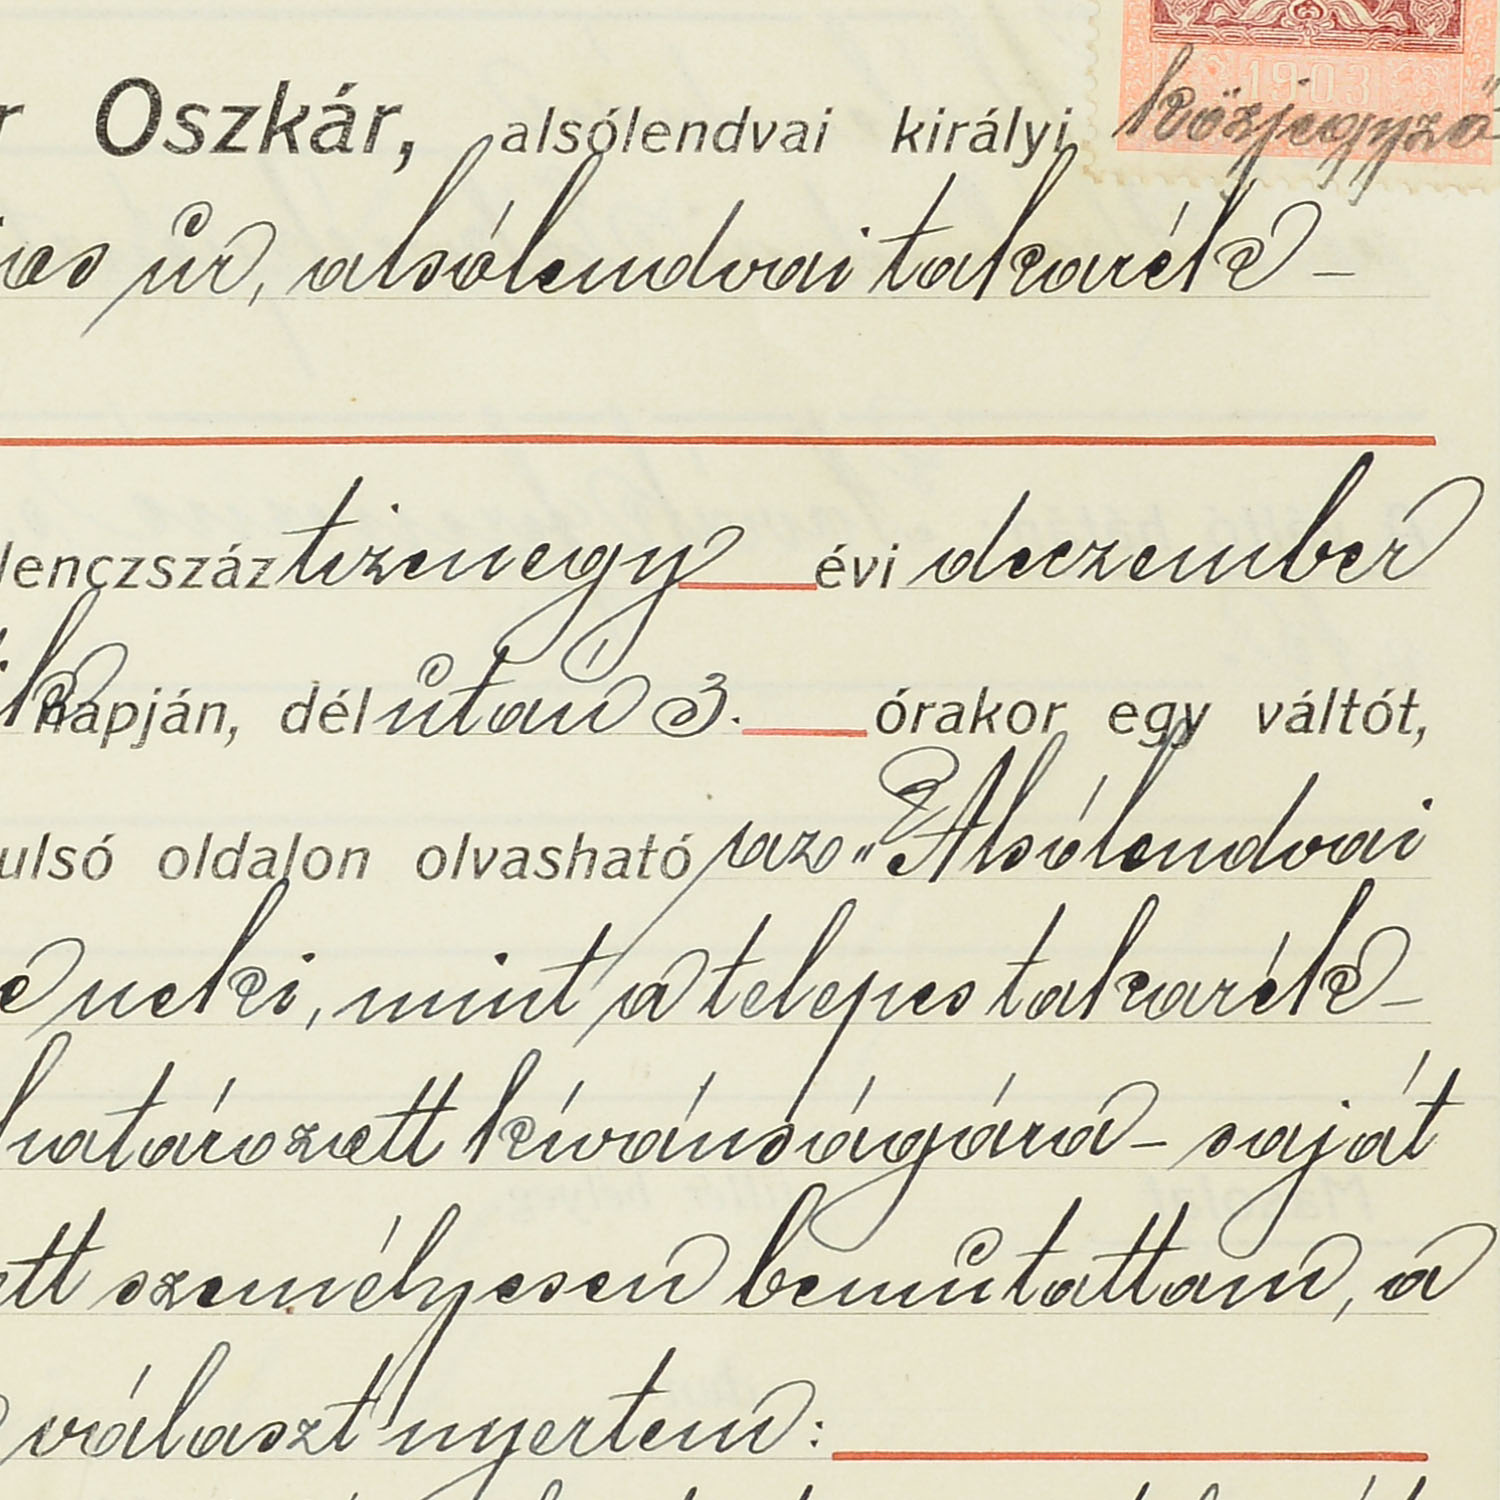 1903
r Oszkár, alsólendvai királyi közjegyző
úr, alsólendvai takarék-
lenczszáz tizenegy évi deczember
ik napján, dél után 3. órakor egy váltót,
ulsó oldalon olvasható az "Alsólendvai
e neki, mint a telepes takarék-
határozott kívánságára - saját
ett személyesen bemutattam, a
választ nyertem: